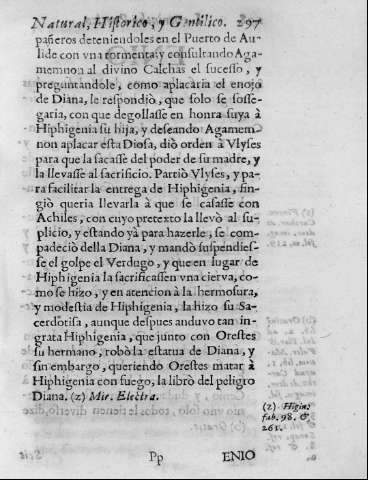 Natural, Historico, y Gentilico. 297
pañeros deteniendoles en el Puerto de Au-
lide con vna tormenta; y consultando Aga-
memnon al divino Calchas el sucesso, y
preguntandole, como aplacaria el enojo
de Diana, le respondiò, que solo se sosse-
garia, con que degollasse en honra suya à
Hiphigenia su hija, y deseando Agamem-
non aplacar esta Diosa, diò orden à Vlyses
para que la sacasse del poder de su madre, y
la llevasse al sacrificio. Partiò Vlyses, y pa-
ra facilitar la entrega de Hiphigenia, fin-
giò queria llevarla à que se casasse con
Achiles, con cuyo pretexto la llevò al su-
plicio, y estando yà para hazerle, se com-
padeciò della Diana, y mandò suspendies-
se el golpe el Verdugo, y que en lugar de
Hiphigenia la sacrificassen vna cierva, co-
mo se hizo, y en atencion à la hermosura,
y modestia de Hiphigenia, la hizo su Sa-
cerdotisa, aunque despues anduvo tan in-
grata Hiphigenia, que junto con Orestes
su hermano, robò la estatua de Diana, y
sin embargo, queriendo Orestes matar à
Hiphigenia con fuego, la librò del peligro
Diana. (z) Mir. Electra.
(z) Higin.
fab. 98. &
261.
Pp ENIO